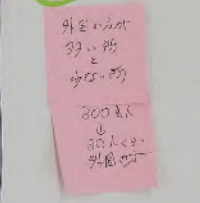 外国の方が
多い所
と
少ない所
300人
↓
30人くらい
外国の方